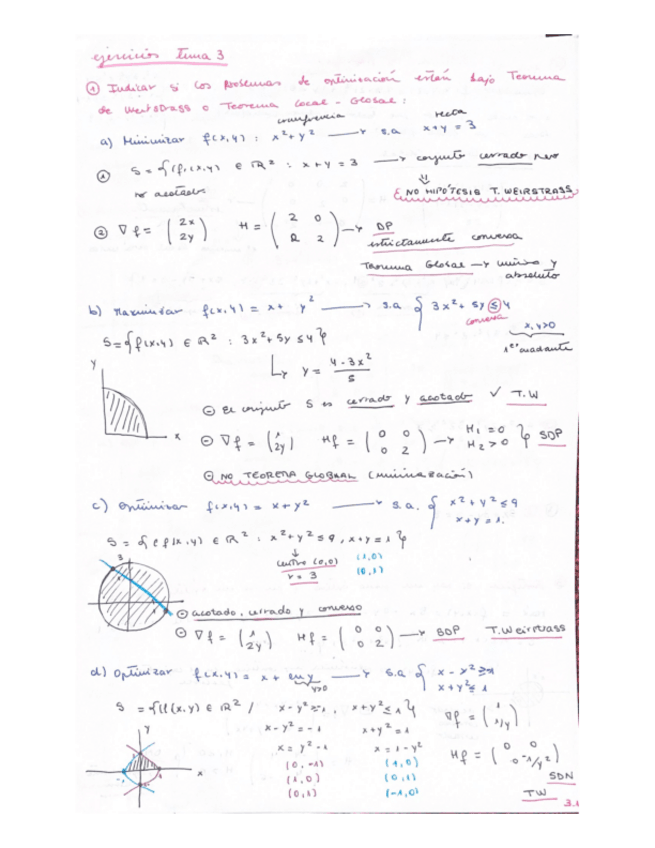 ejercicios Tema 3
① Indicar si los problemas de optimización están bajo Teorema
de Weirstrass o Teorema Local - Global:
circunferencia recta
a) Minimizar f(x,y) : x² + y² → s.a x+y = 3
① S = {f(x,y) ∈ ℝ² : x+y = 3 → conjunto cerrado pero
no acotado
⇓
NO HIPÓTESIS T. WEIRSTRASS
② ∇f = (2x 2y) H = (2 0 0 2) → DP
estrictamente convexa
Teorema Global → único y
absoluto
b) Maximizar f(x,y) = x + y² → s.a { 3x² + 5y ≤ 4
convexa x,y>0
1er cuadrante
S = {f(x,y) ∈ ℝ² : 3x² + 5y ≤ 4}
↳ y = 4-3x² / 5
y
x
⊖ El conjunto S es cerrado y acotado ✓ T.W
⊖ ∇f = (1 2y) Hf = (0 0 0 2) → H₁ = 0 H₂ > 0 } SDP
⊖ NO TEOREMA GLOBAL (minimización)
c) Optimizar f(x,y) = x + y² → s.a. { x² + y² ≤ 9
x + y = 1.
S = {(f(x,y) ∈ ℝ² : x² + y² ≤ 9, x+y = 1}
↓
centro (0,0) (1,0)
r = 3 (0,1)
3
⊖ acotado, cerrado y convexo
⊖ ∇f = (1 2y) Hf = (0 0 0 2) → SDP T. Weirstrass
d) Optimizar f(x,y) = x + ln y → s.a {
y>0
x + y² ≤ 1
∇f = (1 1/y)
x - y² = -1 x + y² = 1
x = y² - 1 x = 1 - y²
Hf = (0 0 0 -1/y²)
(0,-1) (1,0)
(1,0) (0,1)
(0,1) (-1,0)
y
x
SDN
TW
3.1